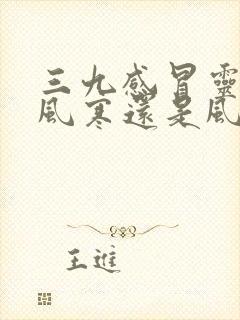 三九感冒靈
風寒還是風
王進